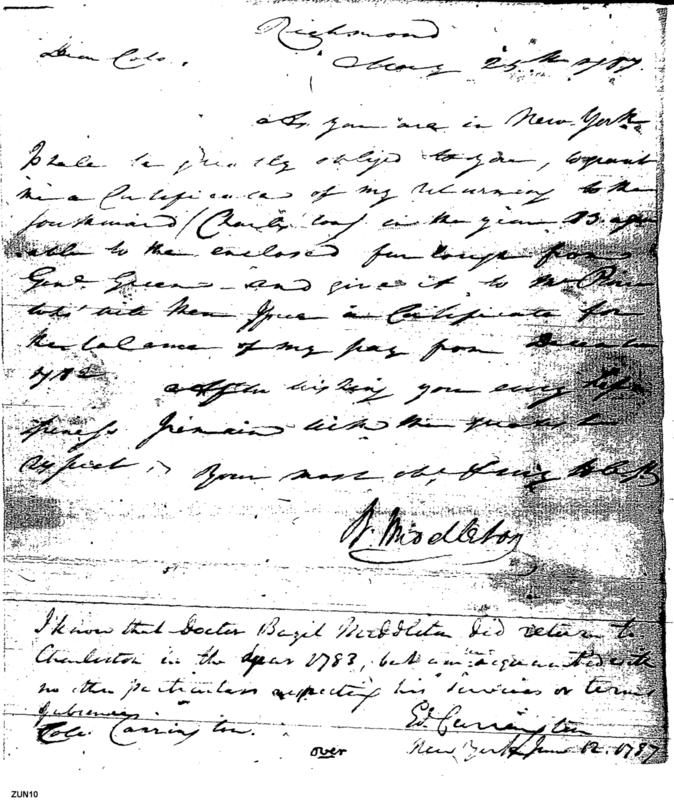 Richmond
Dear Colo. May 25th 1787.
As you are in New York
I shall be greatly obliged to you, to grant
me a Certificate of my returning to the
Southward (Charles town) in the year 83
to the enclosed furlough from
Genl Green - and give it to Mr
who will then Issue a Certificate for
the balance of my pay from December
1782 After wishing you every
I remain with the greatest
respect, Your most obt
B. Middleton
I know that Doctor Bazil Middleton did return to
Charleston in the year 1783, but am unacquainted with
no other particulars respecting his Services or terms
Colo. Carrington. Ed. Carrington
over New York June 12. 1787
ZUN10